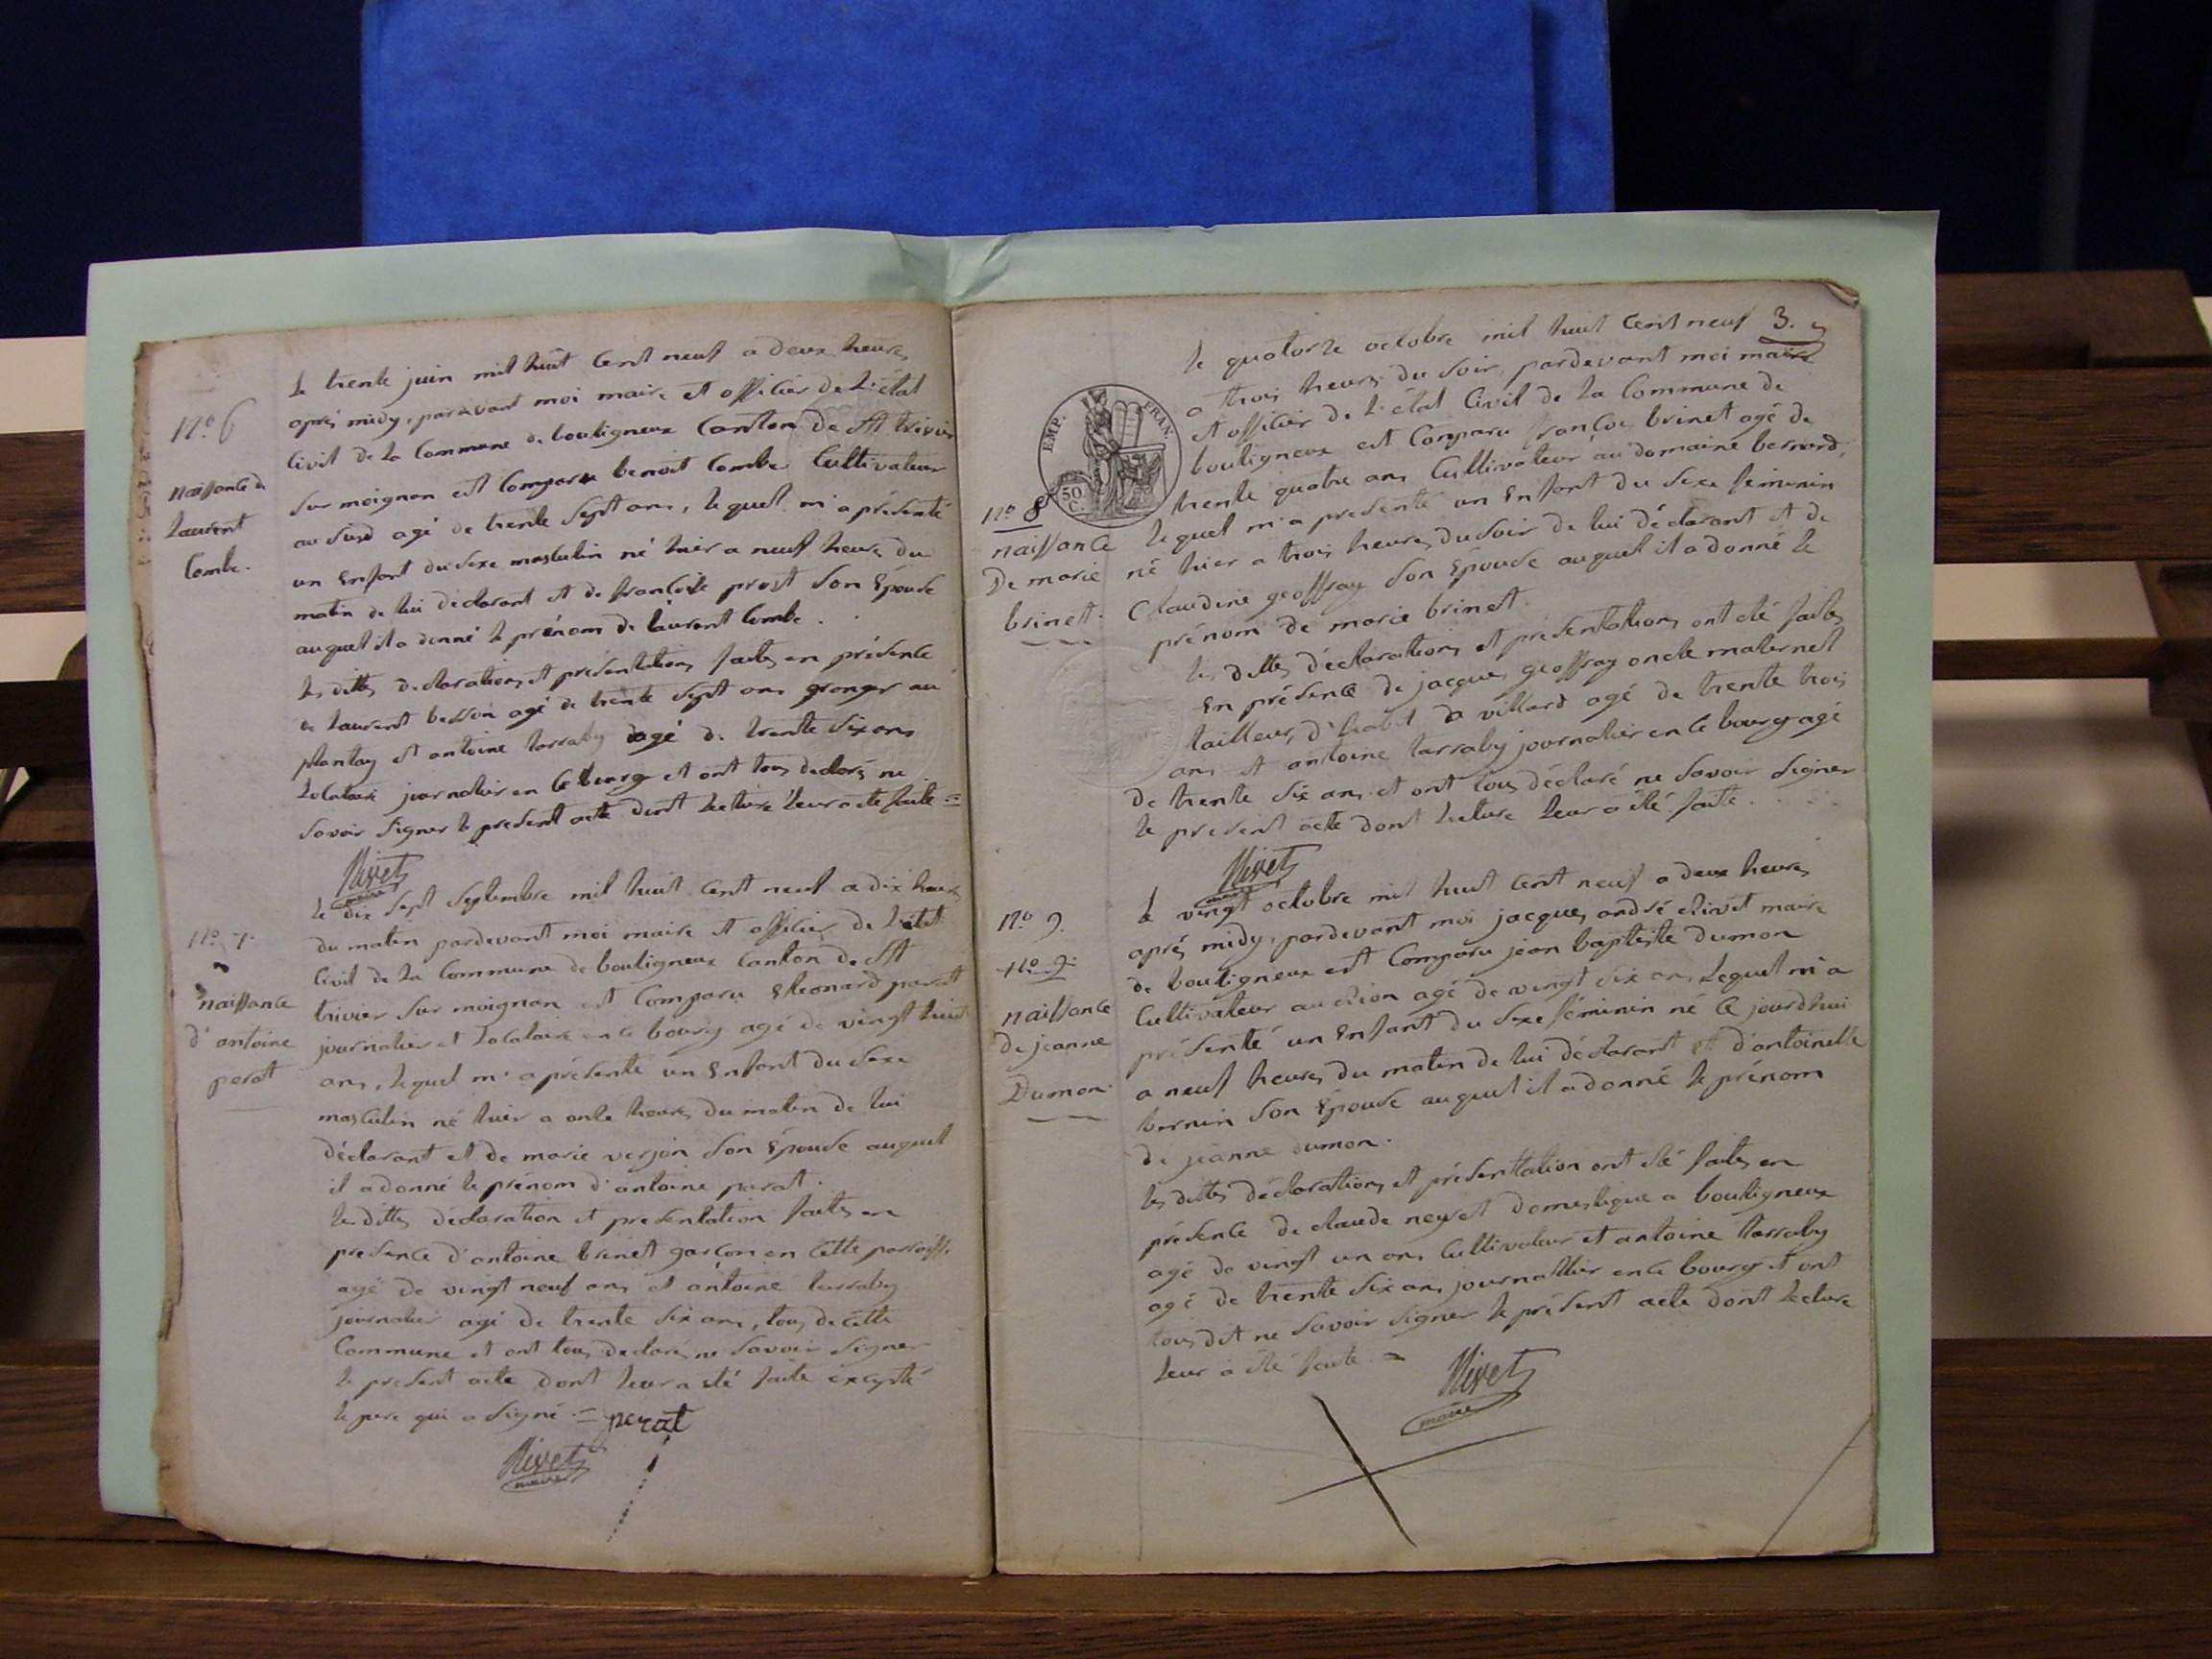 Le trente juin mil huit Cent neuf a deux heures
après midy, pardevant moi maire et officier de L'état
Civil de La Commune de bouligneux Canton de St trivier
Sur moignan est Comparu benoit Combe Cultivateur
au Sud agé de trente Sept ans, lequel m'a présenté
un Enfant du Sexe masculin né hier a neuf heures du
matin de lui déclarant et de francoise prost Son Epouse
auquel il a donné le prénom de laurent Combe.
Les dittes declarations et présentations faites en présence
de laurent besson agé de trente Sept ans granger au
plantay et antoine tarraby agé de trente Six ans
Locataire journalier en Ce bourg et ont tous declaré ne
Savoir Signer le present acte dont Lecture leur a été faite =
Nº 6
Naissance de
Laurent
Combe.
Rivet
maire
Le dix Sept Septembre mil huit Cent neuf a dix heures
du matin pardevant moi maire et officier de L'état
Civil de La Commune de bouligneux Canton de St
trivier Sur moignan est Comparu Leonard parat
journalier et Locataire en Ce bourg agé de vingt huit
ans, lequel m'a présenté un Enfant du Sexe
masculin né hier a onze heures du matin de lui
déclarant et de marie verjon Son Epouse auquel
il a donné le prénom d'antoine parat.
Les dittes déclaration et presentation faites en
presence d'antoine brinet garçon en Cette parroisse
agé de vingt neuf ans et antoine tarraby
journalier agé de trente Six ans, tous de Cette
Commune et ont tous declaré ne Savoir Signer
le present acte dont leur a été faite excepté
le pere qui a Signé = perat
Nº 7.
naissance
d'antoine
parat
Rivet
maire
3.
Le quatorze octobre mil huit Cent neuf
a trois heures du Soir, pardevant moi maire
et officier de L'état Civil de La Commune de
bouligneux est Comparu francois brinet agé de
trente quatre ans Cultivateur au domaine bernard,
lequel m'a presenté un Enfant du Sexe feminin
né hier a trois heures du Soir de lui déclarant et de
Claudine geoffray Son Epouse auquel il a donné le
prénom de marie brinet.
Les dittes déclarations et présentations ont été faites
En présence de jacques geoffray oncle maternel
tailleur d'habit a villard agé de trente trois
ans et antoine tarraby journalier en Ce bourg agé
de trente Six ans et ont tous déclaré ne Savoir Signer
le present acte dont Lecture leur a été faite.
EMP. FRAN.
50 C.
Nº 8
naissance
De marie
brinet.
Rivet
maire
Le vingt octobre mil huit Cent neuf a deux heures
après midy, pardevant moi jacques andré Rivet maire
de bouligneux est Comparu jean baptiste dumon
Cultivateur au Rion agé de vingt Six ans Lequel m'a
présenté un Enfant du Sexe féminin né Ce jourdhui
a neuf heures du matin de lui déclarant et d'antoinette
bernin Son Epouse auquel il a donné le prénom
de jeanne dumon.
les dittes déclarations et présentation ont été faites en
présence de claude neyret domestique a bouligneux
agé de vingt un ans Cultivateur et antoine tarraby
agé de trente Six ans journallier en Ce bourg et ont
tous dit ne Savoir Signer le présent acte dont Lecture
leur a été faite =
Nº 9.
Nº 9.
naissance
De jeanne
Dumon.
Rivet
maire